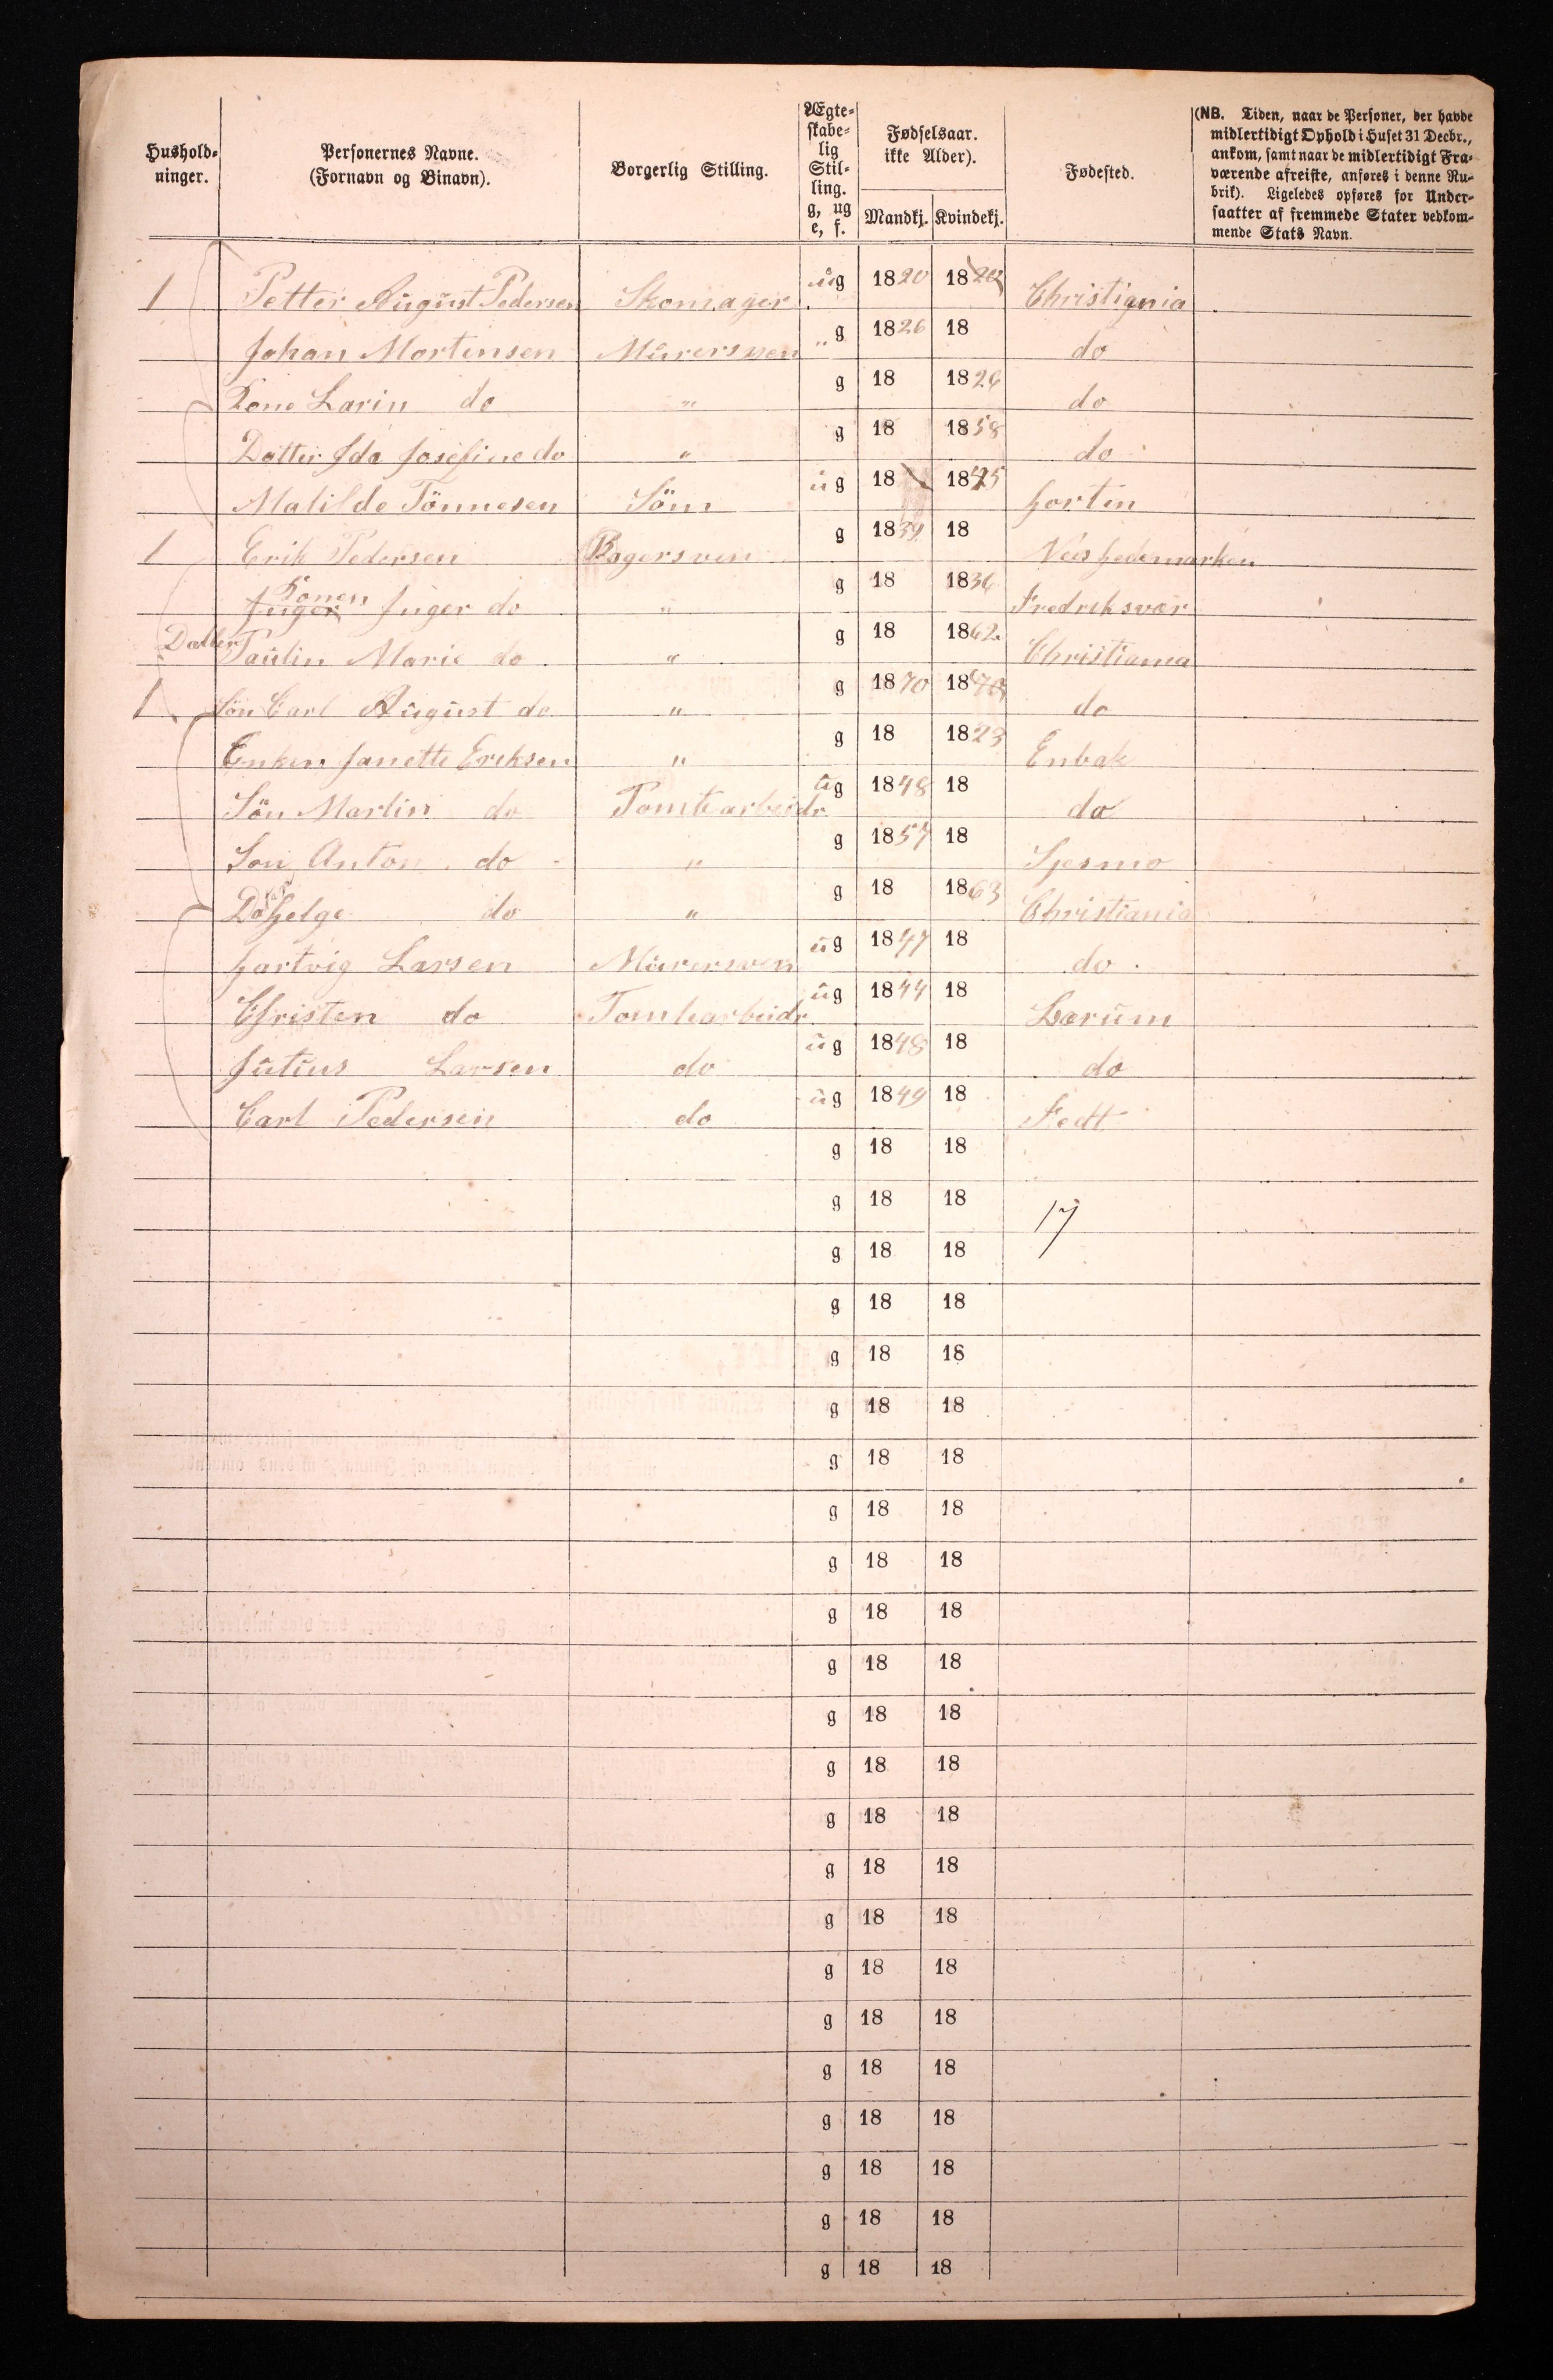 Hushold-
ninger.
Personernes Navne.
(Fornavn og Binavn).
Borgerlig Stilling.
Ægte-
skabe-
lig
Stil-
ling.
g, ug
e, f.
Fødselsaar.
ikke Alder).
Mandkj. Kvindekj.
Fødested.
(NB. Tiden, naar de Personer, der havde
midlertidigt Ophold i Huset 31 Decbr.,
ankom, samt naar de midlertidigt Fra-
værende afreiste, anføres i denne Ru-
brik). Ligeledes opføres for Under-
saatter af fremmede Stater vedkom-
mende Stats Navn.
1 Petter August Pedersen Skomager ug 1820 18 Christiania
Johan Mortinsen Murersven " g 1826 18 do
Kone Larin do " g 18 1826 do
Datter Ida Josefine do " g 18 1858 do
Matilde Tönnesen Söm ug 18 1845 Horten
1 Erik Pedersen Bagersven g 1839 18 Nes Hedemarken
Konen Inger do " g 18 1836 Fredriksvær
Datter Paulin Marie do " g 18 1862 Christiania
1 Sön Carl August do " g 1870 18 do
Enken Janette Eriksen " g 18 1823 Enbak
Sön Martin do Tomtearbeidr ug 1848 18 do
Son Anton do " g 1857 18
Helge do " g 18 1863 Christiania
Hartvig Larsen Murersven ug 1847 18 do
Christen do Tomtearbeidr ug 1844 18 Bærum
Julius Larsen do ug 1848 18 do
Carl Pedersen do ug 1849 18
g 18 18
g 18 18 17
g 18 18
g 18 18
g 18 18
g 18 18
g 18 18
g 18 18
g 18 18
g 18 18
g 18 18
g 18 18
g 18 18
g 18 18
g 18 18
g 18 18
g 18 18
g 18 18
g 18 18
g 18 18
g 18 18
g 18 18
g 18 18